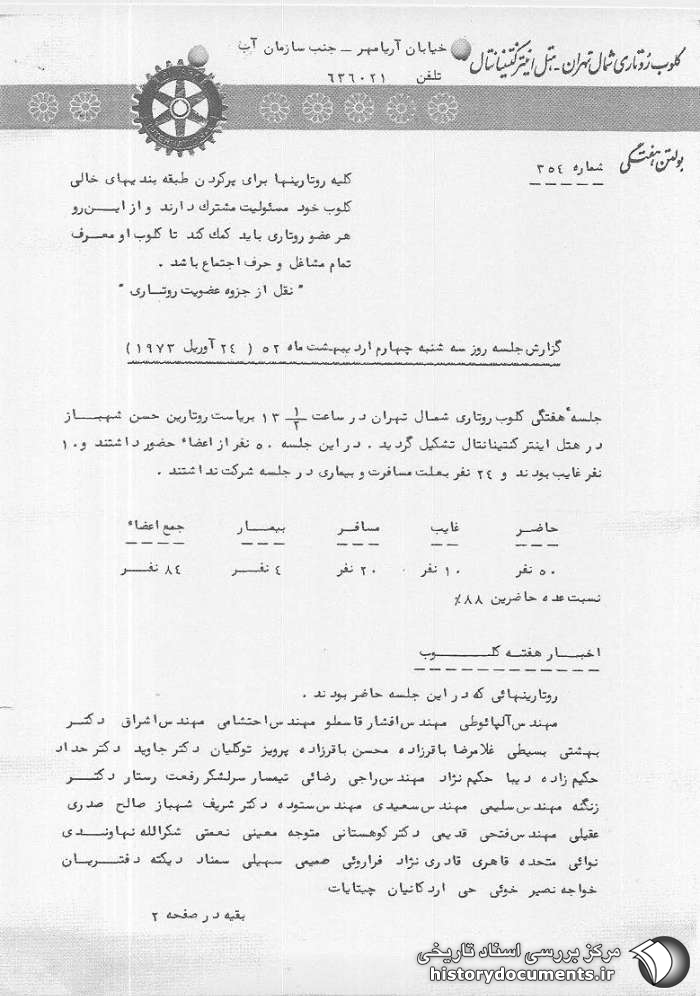 کلوب رُوتاری شمال تهران - هتل اینترکنتینانتال
خیابان آریامهر – جنب سازمان آب
تلفن ۶۳۶۰۲۱
بولتن هفتگی
شماره ۳۵۴
کلیه روتارینها برای پرکردن طبقه بندیهای خالی
کلوب خود مسئولیت مشترک دارند و از ایـن‌رو
هر عضو روتاری باید کمک کند تا کلوب او معـرف
تمام مشاغل و حرف اجتماع باشد .
" نقل از جزوه عضویت روتـاری "
گزارش جلسه روز سه شنبه چهارم اردیبهشت ماه ۵۲ ( ۲۴ آوریل ۱۹۷۳ )
جلسهٔ هفتگی کلوب روتاری شمال تهران در ساعت ۱۳ ۱/۲ بریاست روتارین حسن شهبـاز
در هتل اینتر کنتیناتنال تشکیل گردید . در این جلسه ۵۰ نفر از اعضاء حضور داشتند و ۱۰
نفر غایب بودند و ۲۴ نفر بعلت مسافرت و بیماری در جلسه شرکت نداشتند .
حاضـر غایب مسافـر بیمـار جمع اعضاء
۵۰ نفر ۱۰ نفر ۲۰ نفر ۴ نفـر ۸۴ نفـر
نسبت عده حاضرین ۸۸٪
اخبـار هفته کلـوب
روتارینهائی که در این جلسه حاضر بودند .
مهندس آلپائوطی مهندس افشار قاسملو مهندس احتشامی مهندس اشراق دکتـر
بهشتی بسیطی غلامرضا باقرزاده محسن باقرزاده پرویز توکلیان دکتر جاوید دکتر حداد
حکیم زاده دیبا حکیم نژاد مهندس راجی رضائی تیمسار سرلشگر رفعت رستار دکتـر
زنگنه مهندس سلیمی مهندس سعیدی مهندس ستوده دکتر شریف شهباز صالح صدری
عقیلی مهندس فتحی قدیمی دکتر کوهستانی متوجه معینی نعمتی شکرالله نهاونـدی
نوائی متحده قاهری قادری نژاد فراروئی صمیمی سهیلی سمناد دیکته دفتـریـان
خواجه نصیر خوئی حی اردکانیان چیتایات
بقیه در صفحه ۲
مرکز بررسی اسناد تاریخی
historydocuments.ir